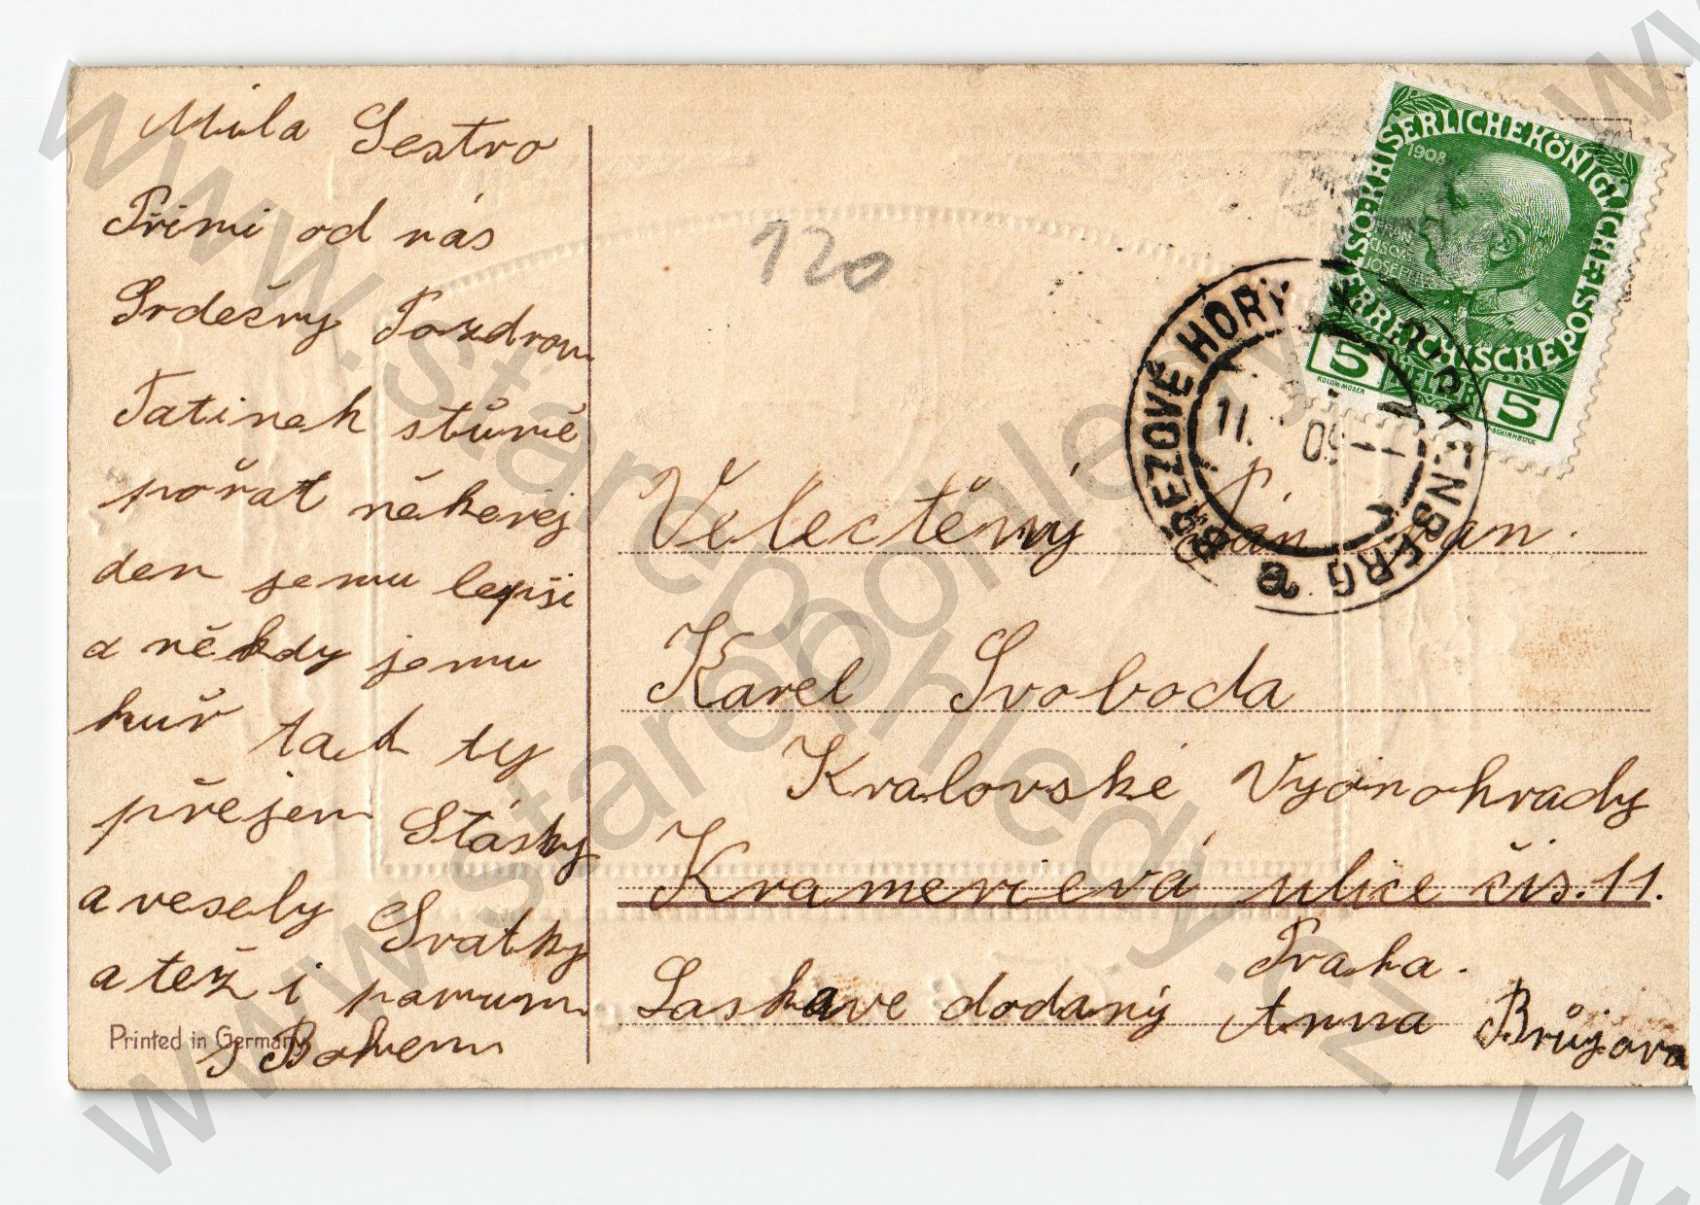 Mila Sestro
Přimi od nás
Srdešny Pozdrav
Tatinek stůně
pořat někerej
den jemu lepši
a někdy jemu
huř tak ty
přejem Stásky
a vesely Svatky
a též i panum
s Bohem
Printed in Germany
120
KAISERLICHEKÖNIGLICHE
ÖSTERREICHISCHEPOST
1908
FRAN
CISCVS
JOSEPHVS
5 HELLER 5
KOLOM. MOSER
BŘEZOVÉ HORY
BIRKENBERG
a
11.
09
Velectěný Pán Pan.
Karel Svoboda
Kralovské Vyoinohrady
Krameriová ulice čis. 11.
Praha.
Laskave dodaný Anna Brůjova
www.starepohledy.cz
www.staropohledy.cz